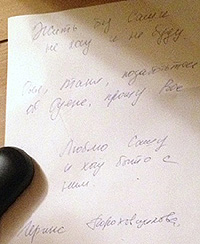 Жить без Саши
не хочу и не буду.
Оля, Таня, позаботьтесь
об Олене, прошу Вас
Люблю Сашу
и хочу быть с
ним.